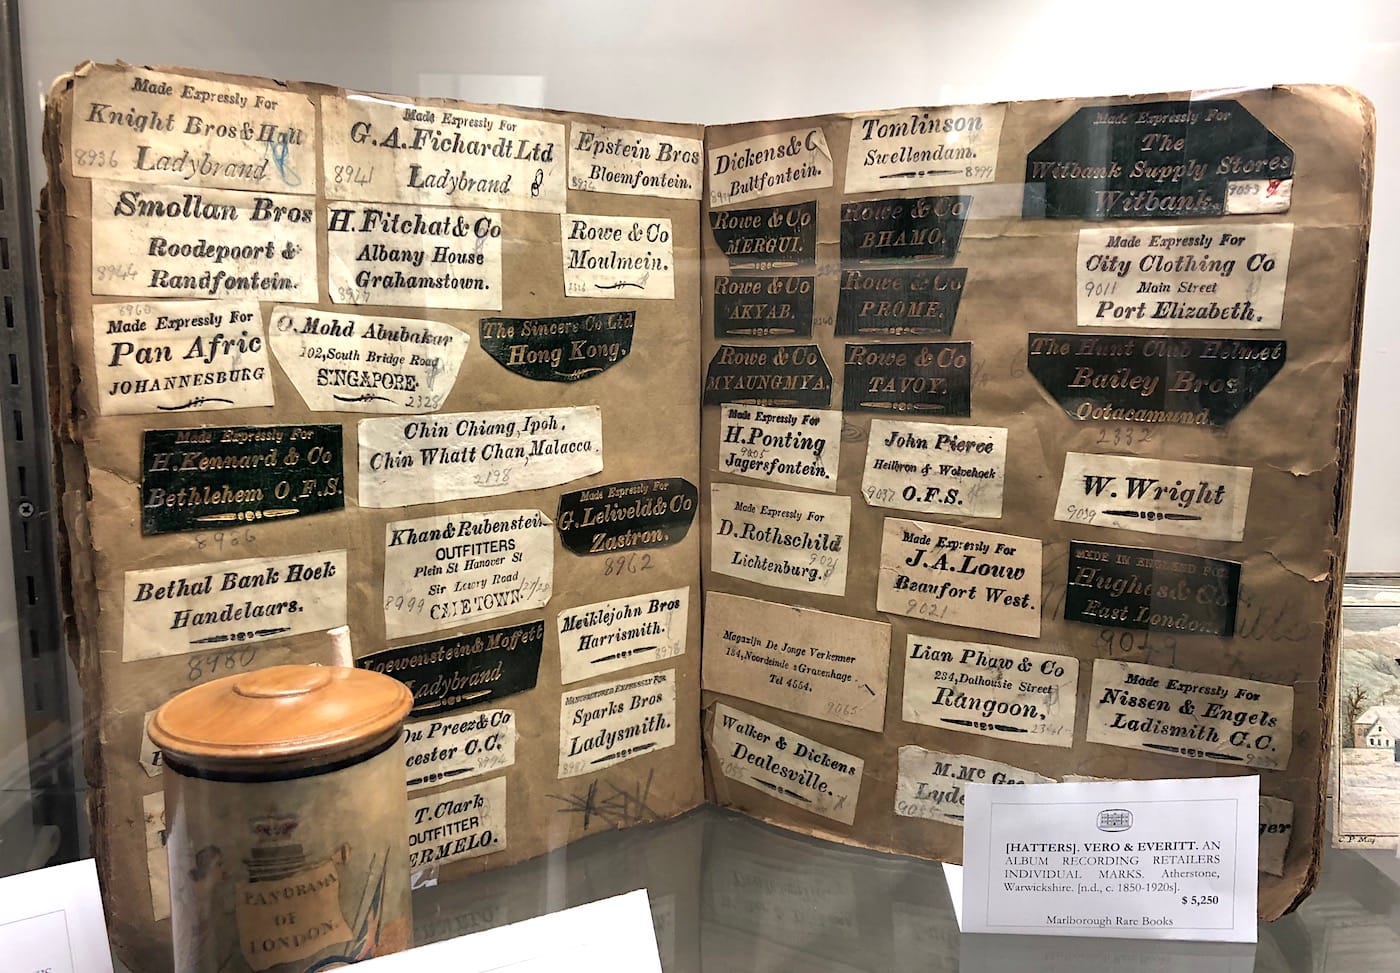 Made Expressly For
Knight Bros & Hall
8936
Ladybrand
Made Expressly For
G.A.Fichardt Ltd
8941
Ladybrand
Epstein Bros
Bloemfontein.
Smollan Bros
Roodepoort &
8944
Randfontein.
H.Fitchat & Co
Albany House
Grahamstown.
Rowe & Co
Moulmein.
8960
Made Expressly For
Pan Afric
JOHANNESBURG
O.Mohd Abubakar
102,South Bridge Road
SINGAPORE.
2328
The Sincere Co Ltd
Hong Kong.
Made Expressly For
H.Kennard & Co
Bethlehem O.F.S.
8986
Chin Chiang,Ipoh.
Chin Whatt Chan,Malacca.
2198
Made Expressly For
G.Leliveld & Co
Zastron.
8962
Khan & Rubenstein
OUTFITTERS
Plein St Hanover St
Sir Lowry Road
8999
CAPETOWN.
Bethal Bank Hoek
Handelaars.
8980
Meiklejohn Bros
Harrismith.
8978
Loewenstein & Moffett
Ladybrand
MANUFACTURED EXPRESSLY FOR
Sparks Bros
Ladysmith.
Du Preez & Co
cester C.C.
8994
T.Clark
OUTFITTER
ERMELO.
PANORAMA
OF
LONDON.
Dickens & C
Bultfontein.
Tomlinson
Swellendam.
8999
Made Expressly For
The
Witbank Supply Stores
Witbank.
9053
Rowe & Co
MERGUI.
Rowe & Co
BHAMO.
Made Expressly For
City Clothing Co
9011
Main Street
Port Elizabeth.
Rowe & Co
AKYAB.
Rowe & Co
PROME.
Rowe & Co
MYAUNGMYA.
Rowe & Co
TAVOY.
The Hunt Club Helmet
Bailey Bros
Ootacamund.
2332
Made Expressly For
H.Ponting
9005
Jagersfontein.
John Pierce
Heilbron & Wolvehoek
9037
O.F.S.
W.Wright
9039
Made Expressly For
D.Rothschild
Lichtenburg.
Made Expressly For
J.A.Louw
Beaufort West.
9021
MADE IN ENGLAND FOR
Hughes & Co
East London.
Magazijn De Jonge Verkenner
184,Noordeinde s Gravenhage.
Tel 4554.
9065
Lian Phaw & Co
234,Dalhousie Street
Rangoon,
2341
Made Expressly For
Nissen & Engels
Ladismith C.C.
Walker & Dickens
Dealesville.
M.Mc Gee
Lyde
[HATTERS]. VERO & EVERITT. AN
ALBUM RECORDING RETAILERS
INDIVIDUAL MARKS. Atherstone,
Warwickshire. [n.d., c. 1850-1920s].
$ 5,250
Marlborough Rare Books